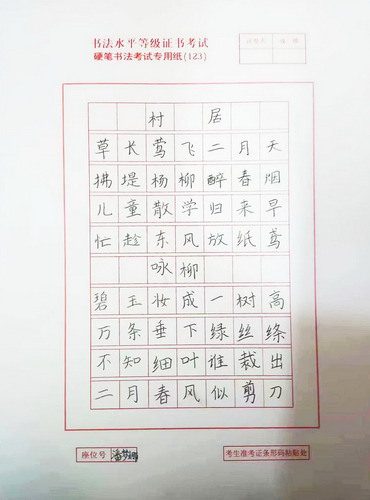 书法水平等级证书考试
硬笔书法考试专用纸(123)
村 居
草长莺飞二月天
拂堤杨柳醉春烟
儿童散学归来早
忙趁东风放纸鸢
咏柳
碧玉妆成一树高
万条垂下绿丝绦
不知细叶谁裁出
二月春风似剪刀
座位号
考生准考证条形码粘贴处